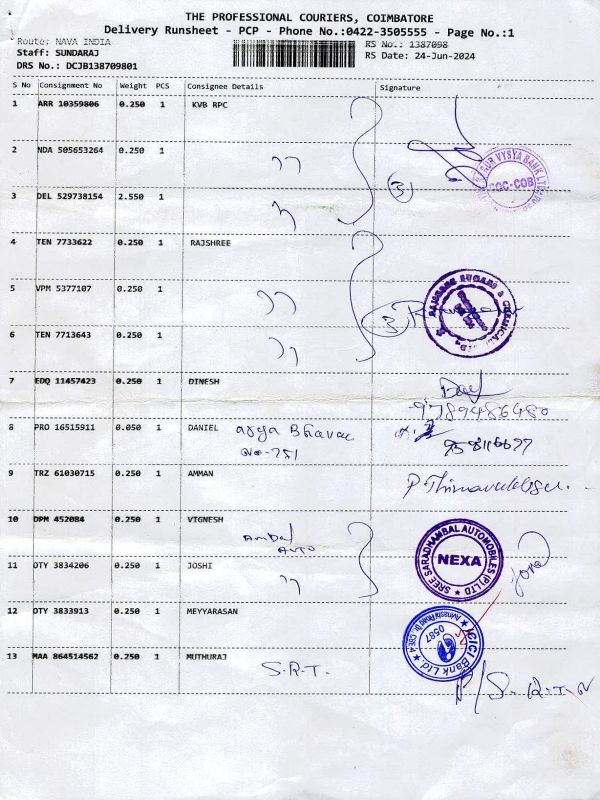 THE PROFESSIONAL COURIERS, COIMBATORE
Delivery Runsheet - PCP - Phone No.:0422-3505555 - Page No.:1
Route: NAVA INDIA
RS No.: 1387098
Staff: SUNDARAJ
RS Date: 24-Jun-2024
DRS No.: DCJB138709801
S No Consignment No Weight PCS Consignee Details Signature
1 ARR 10359806 0.250 1 KVB RPC
2 NDA 505653264 0.250 1
3 DEL 529738154 2.550 1
3
COC-COB
4 TEN 7733622 0.250 1 RAJSHREE
5 VPM 5377107 0.250 1
3
6 TEN 7713643 0.250 1
7 EDQ 11457423 0.250 1 DINESH
9789486480
8 PRO 16515911 0.050 1 DANIEL
9 TRZ 61030715 0.250 1 AMMAN
10 DPM 452084 0.250 1 VIGNESH
Ambal
Auto
SREE SARADHAMBAL AUTOMOBILES (P) LTD
NEXA
11 OTY 3834206 0.250 1 JOSHI
12 OTY 3833913 0.250 1 MEYYARASAN
ICICI Bank Ltd
0587
13 MAA 864514562 0.250 1 MUTHURAJ
S.R.T.